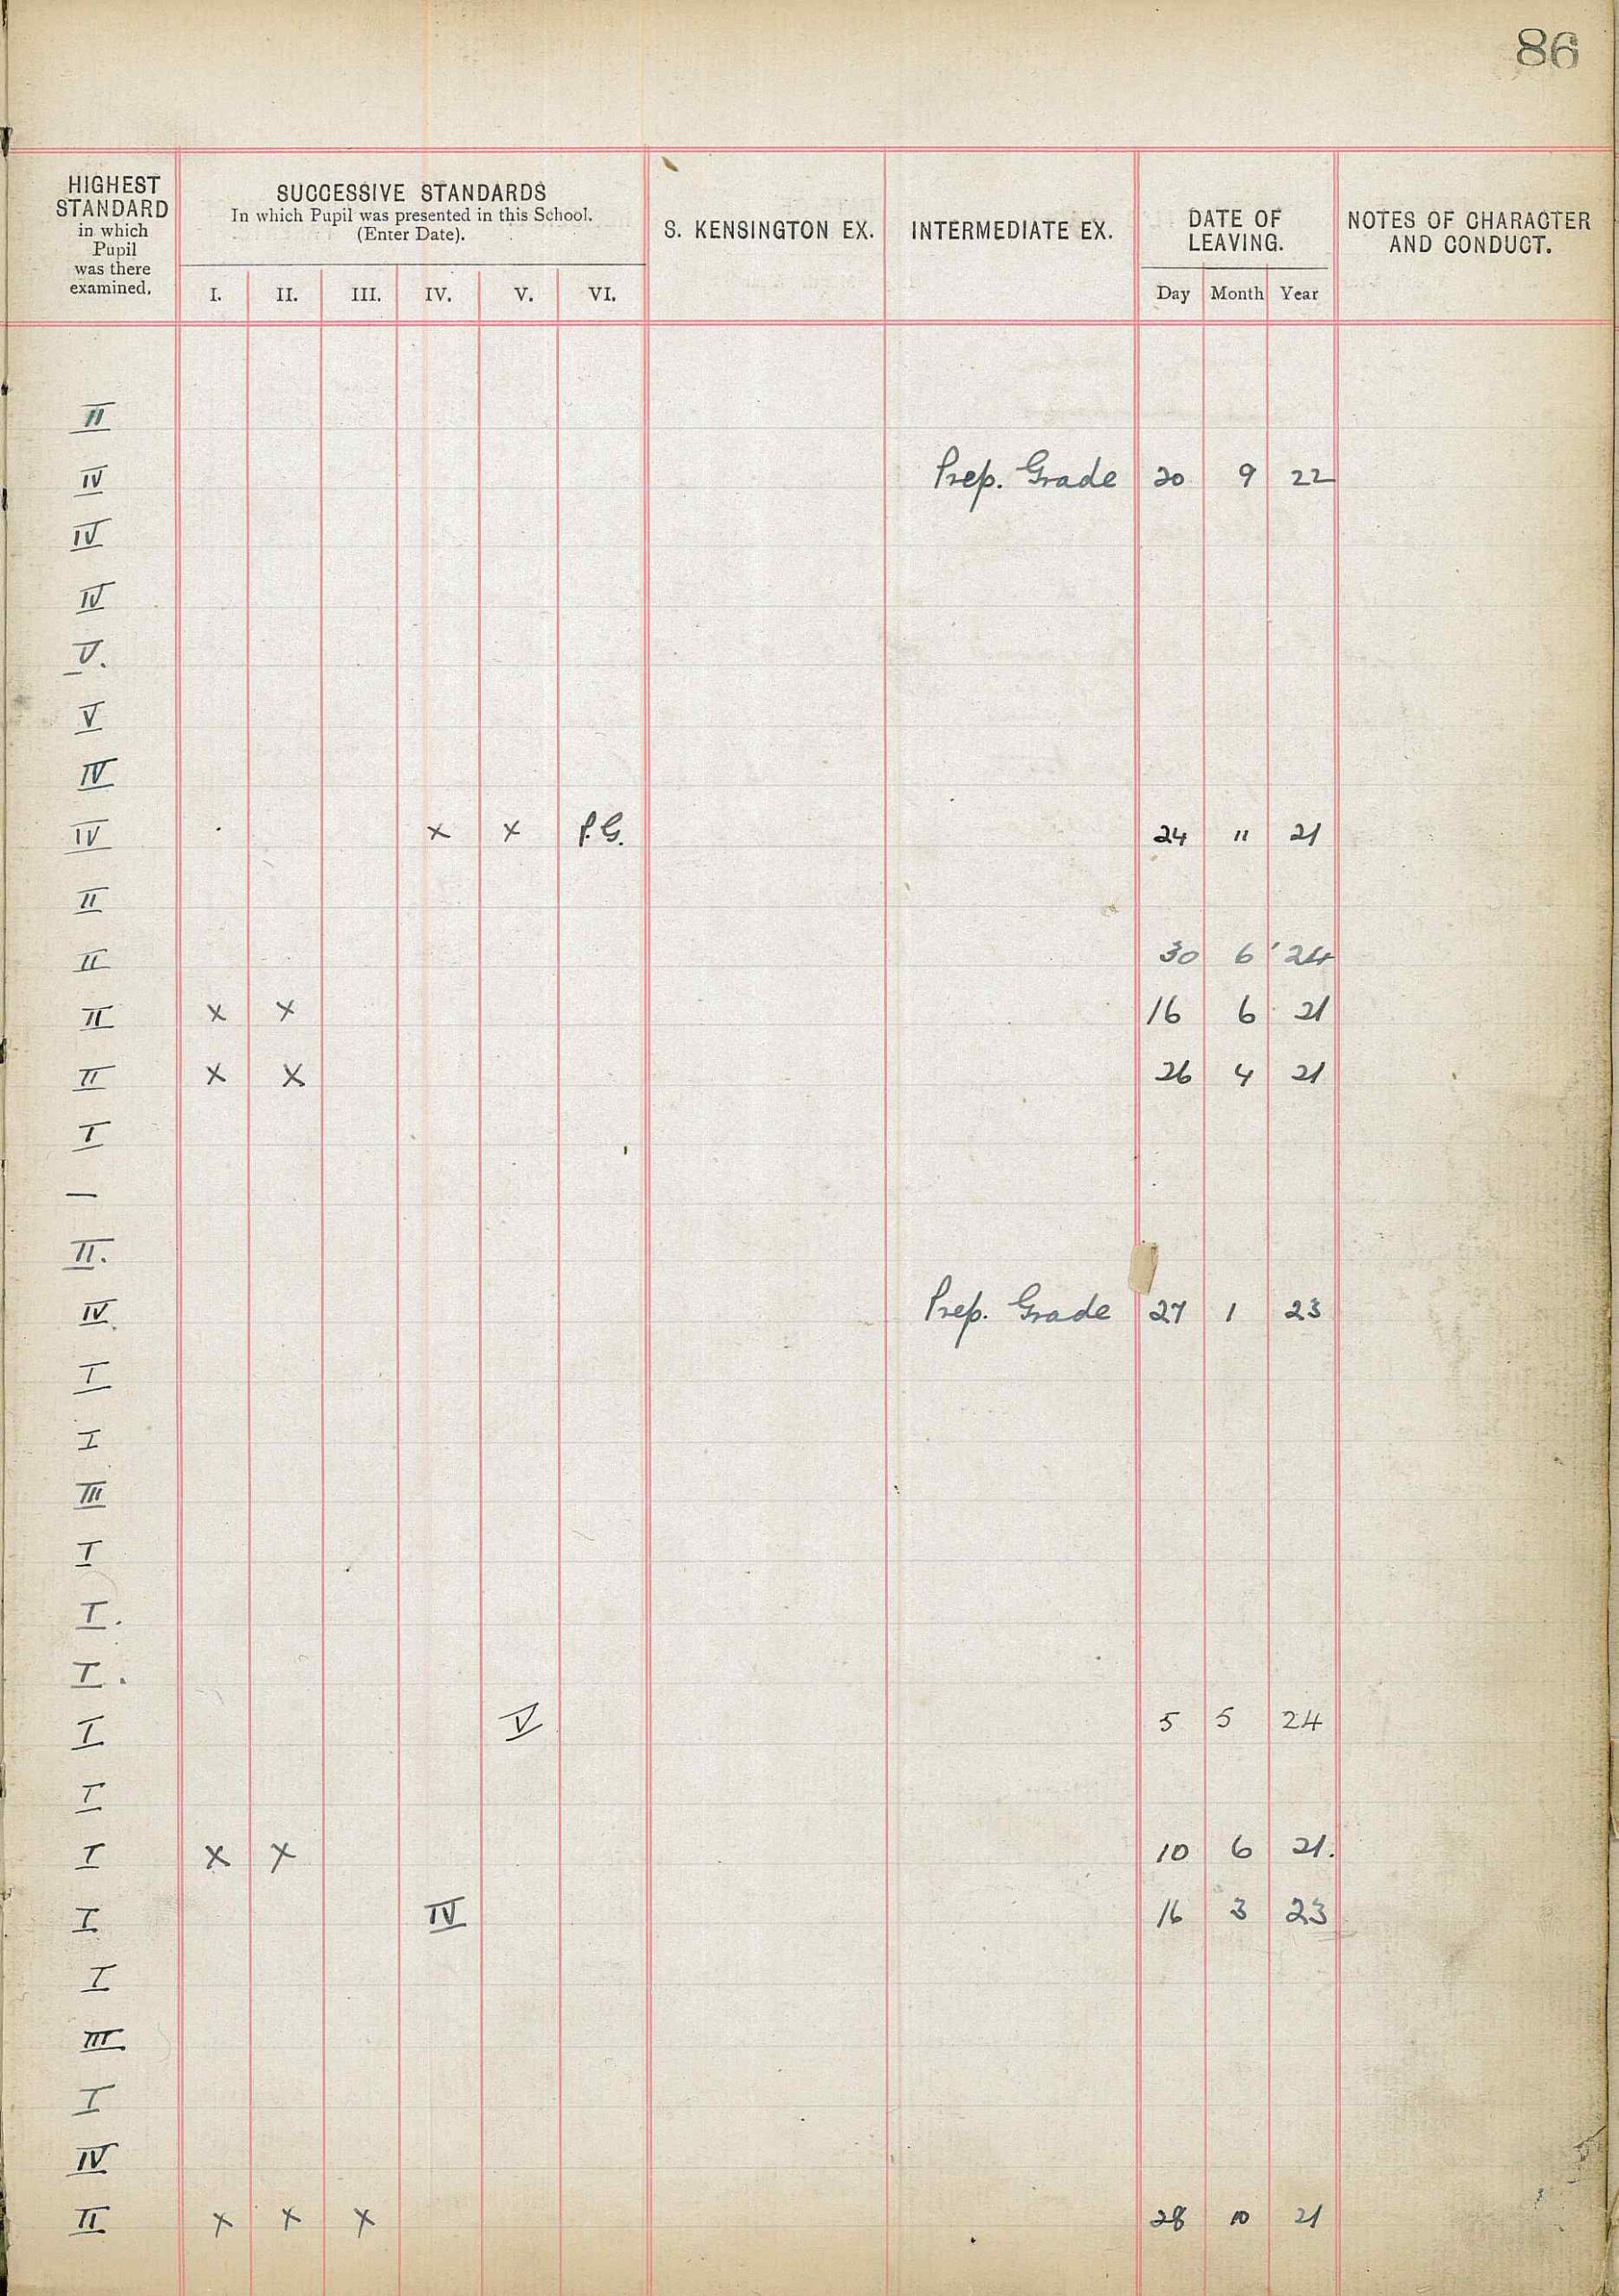 86
HIGHEST STANDARD in which Pupil was there examined.
SUCCESSIVE STANDARDS
In which Pupil was presented in this School.
(Enter Date).
I. II. III. IV. V. VI.
S. KENSINGTON EX.
INTERMEDIATE EX.
DATE OF LEAVING.
Day Month Year
NOTES OF CHARACTER AND CONDUCT.
II
IV Prep. Grade 20 9 22
IV
IV
V.
V
IV
IV x x P.G. 24 11 21
II
II 30 6 '24
II x x 16 6 21
II x x 26 4 21
I
—
II.
IV. Prep. Grade 27 1 23
I
I
III
I
I.
I.
I V 5 5 24
I
I x x 10 6 21.
I IV 16 3 23
I
III
I
IV
II x x x 28 10 21